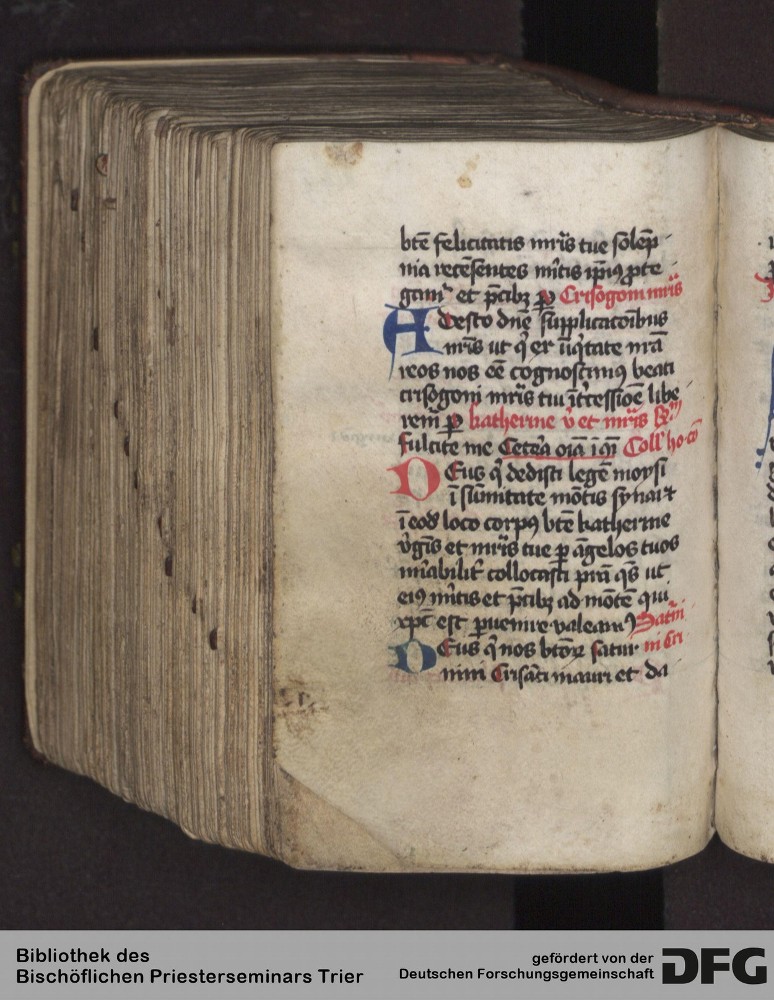 btē felicitatis mr̄is tue sōlēp
nia recēsentes mītis ipīus ꝓte
gam̄ et p̄cibꝫ ꝑ Crisogoni mr̄is
Adesto dn̄e supplicacōibus
nr̄is ut q̄ ex iīqͥtate nr̄a
reos nos eē cognoscimꝰ beati
crisogoni mr̄is tui īt̄cessiōe libe
rem̄ ꝑ katherine v̄ et mr̄is
fulcite me Cetēa oīa
Deus q̄ dedisti legē moysi
ī sūmitate mōtis synai ⁊
ī eodē loco corpꝰ btē katherine
v̄gīs et mr̄is tue ꝑ āgelos tuos
mīabilit̄ collocasti p̄rā q̄s ut
eiꝰ mītis et p̄cibꝫ ad mōtē qui
xp̄c est ꝑuenire valeamꝰ Satīn
Deus q̄ nos btōꝝ satur in Cri
nini Crisāti mauri et da
Bibliothek des
Bischöflichen Priesterseminars Trier
gefördert von der
Deutschen Forschungsgemeinschaft
DFG